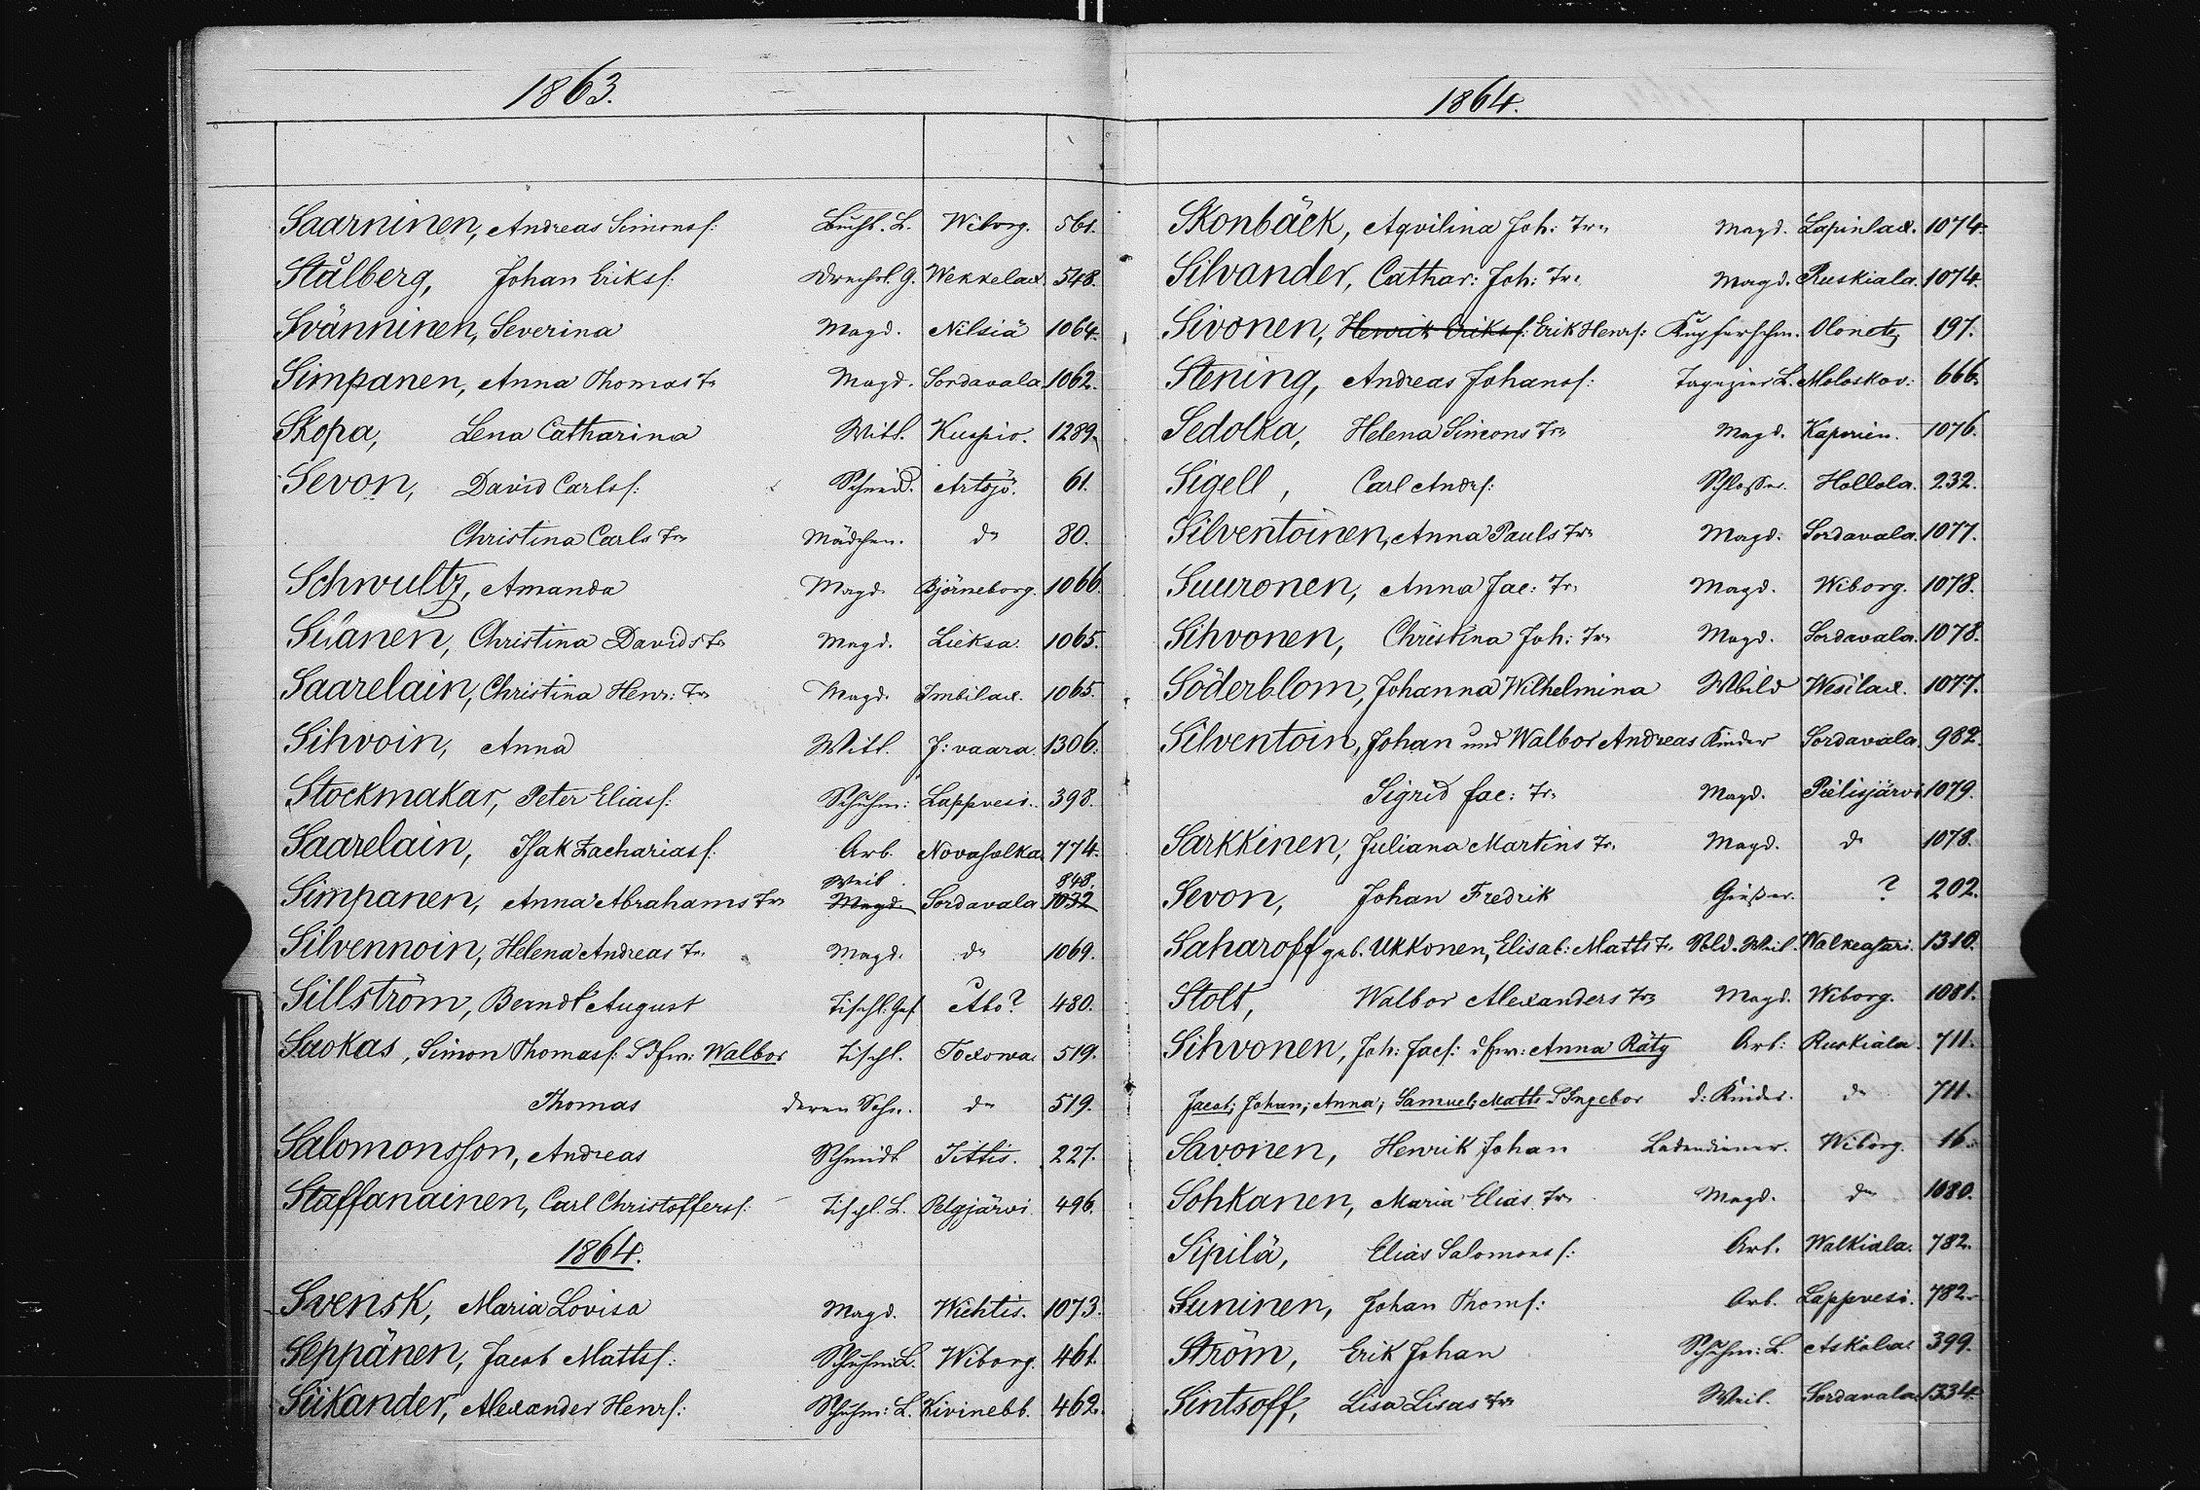 1863.
Saarninen, Andreas Simonsf: Buchb. L. Wiborg. 561.
Stålberg, Johan Eriksf: Drechsl. G. Wekkelax. 548.
Svänninen, Severina Magd. Nilsiä 1064.
Simpanen, Anna Thomas Tr Magd. Sordavala 1062.
Skopa, Lena Catharina Kuopio. 1289.
Sevon, David Carlsf: Schneid. Artsjö. 61.
Christina Carls Tr Mädchen. do 80.
Schwultz, Amanda Magd. Björneborg. 1066.
Silanen, Christina Davids Tr Magd. Lieksa. 1065.
Saarelain, Christina Henr: Tr Magd. Imbilax. 1065.
Sihvoin, Anna J: vaara. 1306.
Stockmakar, Peter Eliasf: Schuhm: Lappvesi. 398.
Saarelain, Isak Zachariasf. Arb. 774.
Simpanen, Anna Abrahams Tr Weib Magd. Sordavala 848. 1032
Silvennoin, Helena Andreas Tr. Magd. do 1069.
Sillström, Berndt August Tischl: Ges Åbo? 480.
Saokas, Simon Thomasf: Walbor Tischl. Toxowa. 519.
Thomas deren Sohn. do 519.
Salomonsson, Andreas Schmidt Jittis. 227.
Staffanainen, Carl Christoffersf: Tischl. L. Pelgjärvi. 496.
1864.
Svensk, Maria Lovisa Magd. Wichtis. 1073.
Seppänen, Jacob Mattsf: Schuhm: L. Wiborg. 461.
Siikander, Alexander Henrf: Schuhm: L. Kivinebb. 462.
1864.
Skonbäck, Aqvilina Joh: Tr Magd. Lapinlax. 1074.
Silvander, Cathar: Joh: Tr Magd. Ruskiala. 1074.
Sivonen, Henrik Eriksf: Erik Henrf: Kupferschm. Olonetz 197.
Stening, Andreas Johansf: Tapezier L. Moloskov: 666.
Sedolka, Helena Simons Tr Magd. Kaporien. 1076.
Sigell, Carl Andrf: Schlosser. Hollola. 232.
Silventoinen, Anna Pauls Tr Magd. Sordavala. 1077.
Suuronen, Anna Jac: Tr Magd. Wiborg. 1078.
Sihvonen, Christina Joh: Tr Magd. Sordavala. 1078.
Söderblom, Johanna Wilhelmina Wesilax. 1077.
Silventoin, Johan und Walbor Andreas Kinder Sordavala. 982.
Sigrid Jac: Tr Magd. Pielisjärvi 1079.
Sarkkinen, Juliana Martins Tr. Magd. do 1078.
Sevon, Johan Fredrik Giesser. ? 202.
Saharoff geb. Ukkonen, Elisab: Matts Tr. Sold. Weib. Walkeasari. 1310.
Stolt, Walbor Alexanders Tr Magd. Wiborg. 1081.
Sihvonen, Joh: Jacf: Anna Räty Arb: Ruskiala. 711.
Jacob; Johan; Anna; Samuel; Matts & Ingebor d: Kinder. do 711.
Savonen, Henrik Johan Ladendiener. Wiborg. 16.
Sohkanen, Maria Elias Tr Magd. do 1080.
Sipilä, Elias Salomonsf: Arb. Walkiala. 782.
Suninen, Johan Thomf: Arb. Lappvesi. 782.
Ström, Erik Johan Schuhm: L. Askola. 399.
Sintsoff, Lisa Lisas Tr Weib. Sordavala 1334.